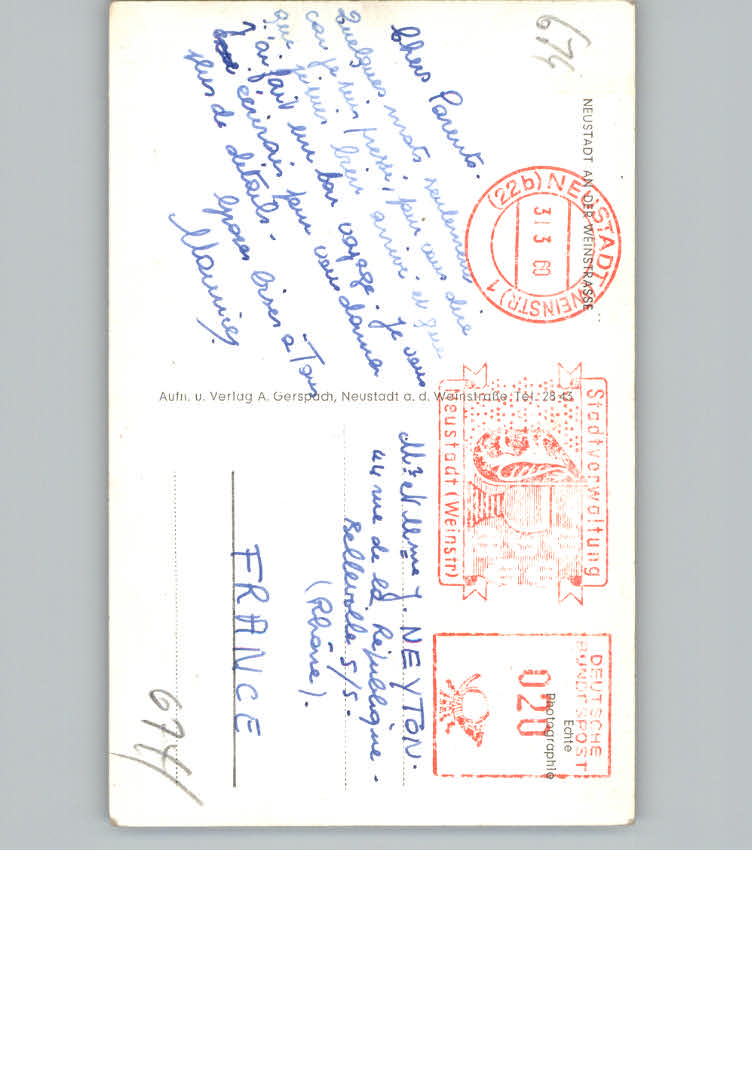 674
NEUSTADT AN DER WEINSTRASSE
Chers Parents.
Quelques mots seulement
car je suis pressé, pour vous dire
que je suis bien arrivé et que
j'ai fait un bon voyage. Je vous
écrirais pour vous donner
plus de détails.
Grosses bises à Tous
Aufn. u. Verlag A. Gerspach, Neustadt a. d. Weinstraße, Tel. 2843
(22b) NEUSTADT
(WEINSTR) 1
31 3 60
Stadtverwaltung
Neustadt (Weinstr)
DEUTSCHE
BUNDESPOST
020
Echte
Photographie
Mr et Mme J. NEYTON.
44 rue de la République.
Belleville s/s.
(Rhône).
FRANCE
674